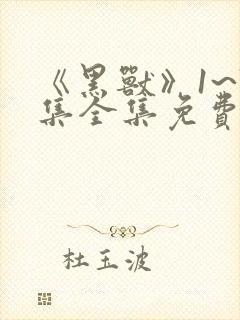 《黑獸》1~
集全集免費
杜玉波